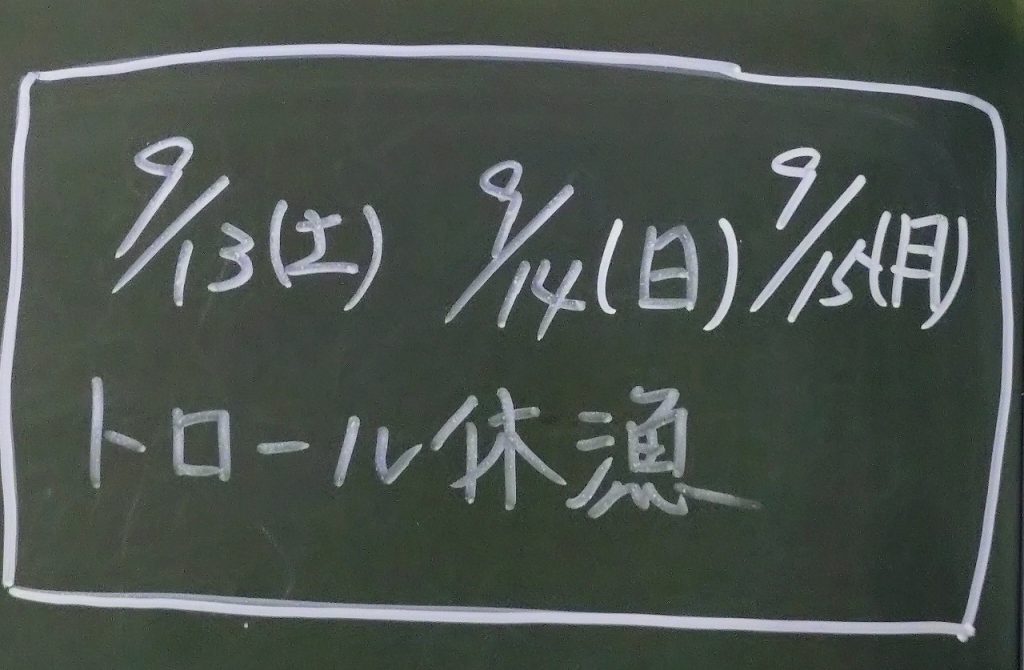 9/13(土) 9/14(日) 9/15(月)
トロール休漁